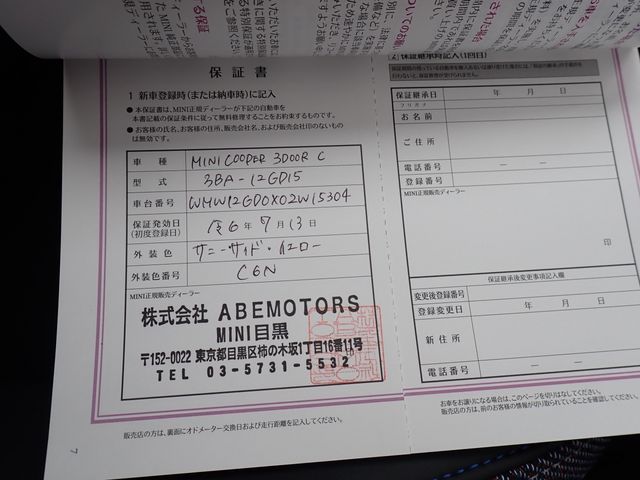 保証書
1 新車登録時(または納車時)に記入
●本保証書は、MINI正規ディーラーが下記の自動車を
本書記載の保証条件に従って無料修理することをお約束するものです。
●お客様の氏名、お客様の住所、販売会社名、および販売会社印のないもの
は無効です。
車種 MINI COOPER 3DOOR C
型式 3BA-12GD15
車台番号 WMW12GD0X02W15304
保証発効日 令6年7月13日
(初度登録日)
外装色 サニーサイド・イエロー
外装色番号 C6N
MINI正規販売ディーラー
株式会社 ABEMOTORS
MINI目黒
〒152-0022 東京都目黒区柿の木坂1丁目16番11号
TEL 03-5731-5532
販売店の方は、裏面にオドメーター交換日および走行距離を記入してください。
7
2 保証継承時記入(1回目)
保証継承日 年 月 日
フリガナ
お名前
ご住所
電話番号 — —
登録番号
MINI正規販売ディーラー
印
保証継承後変更事項記入欄
変更後登録番号
登録変更日 年 月 日
新住所
電話番号 — —
お車をお譲りになる場合は、このページを切りはなしてください。
販売店の方は、前のお客様の情報が切り取られていることを確認してください。